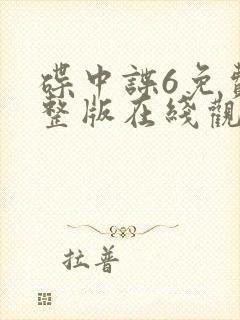 碟中諜6免費
整版在綫觀
拉普